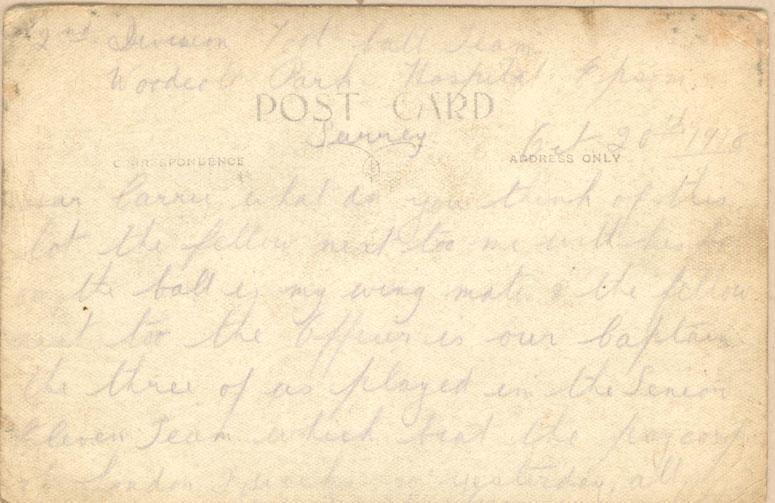 2nd Division Foot ball Team
Woodcote Park Hospital Epsom
POST CARD
Surrey Oct 20th 1916
CORRESPONDENCE ADDRESS ONLY
Dear Carrie what do you think of this
lot the fellow next too me with his
on the ball is my wing mate & the fellow
next too the Officer is our Captain
the three of us played in the Senior
Eleven Team which beat the paycorp
London yesterday, all